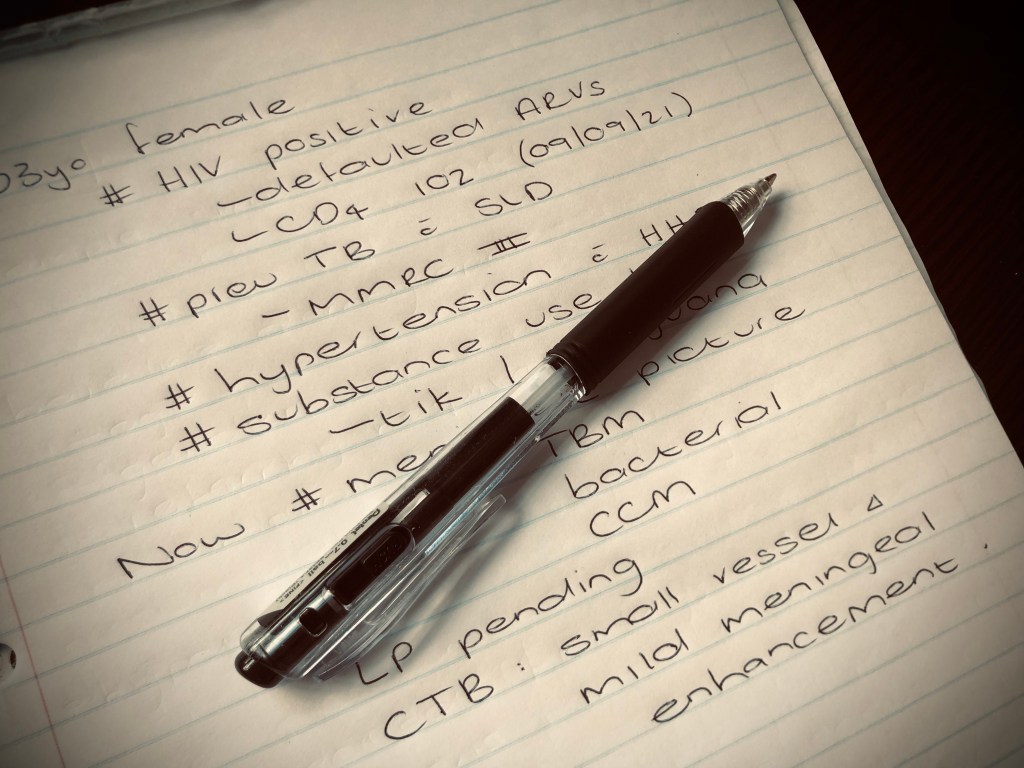 female
# HIV positive
-defaulted ARVs
-CD4 102 (09/09/21)
# prev TB c̄ SLD
-MMRC III
# hypertension c̄
# substance use
-tik |
Now # picture
TBM
bacterial
CCM
LP pending
CTB : small vessel Δ
mild meningeal
enhancement.